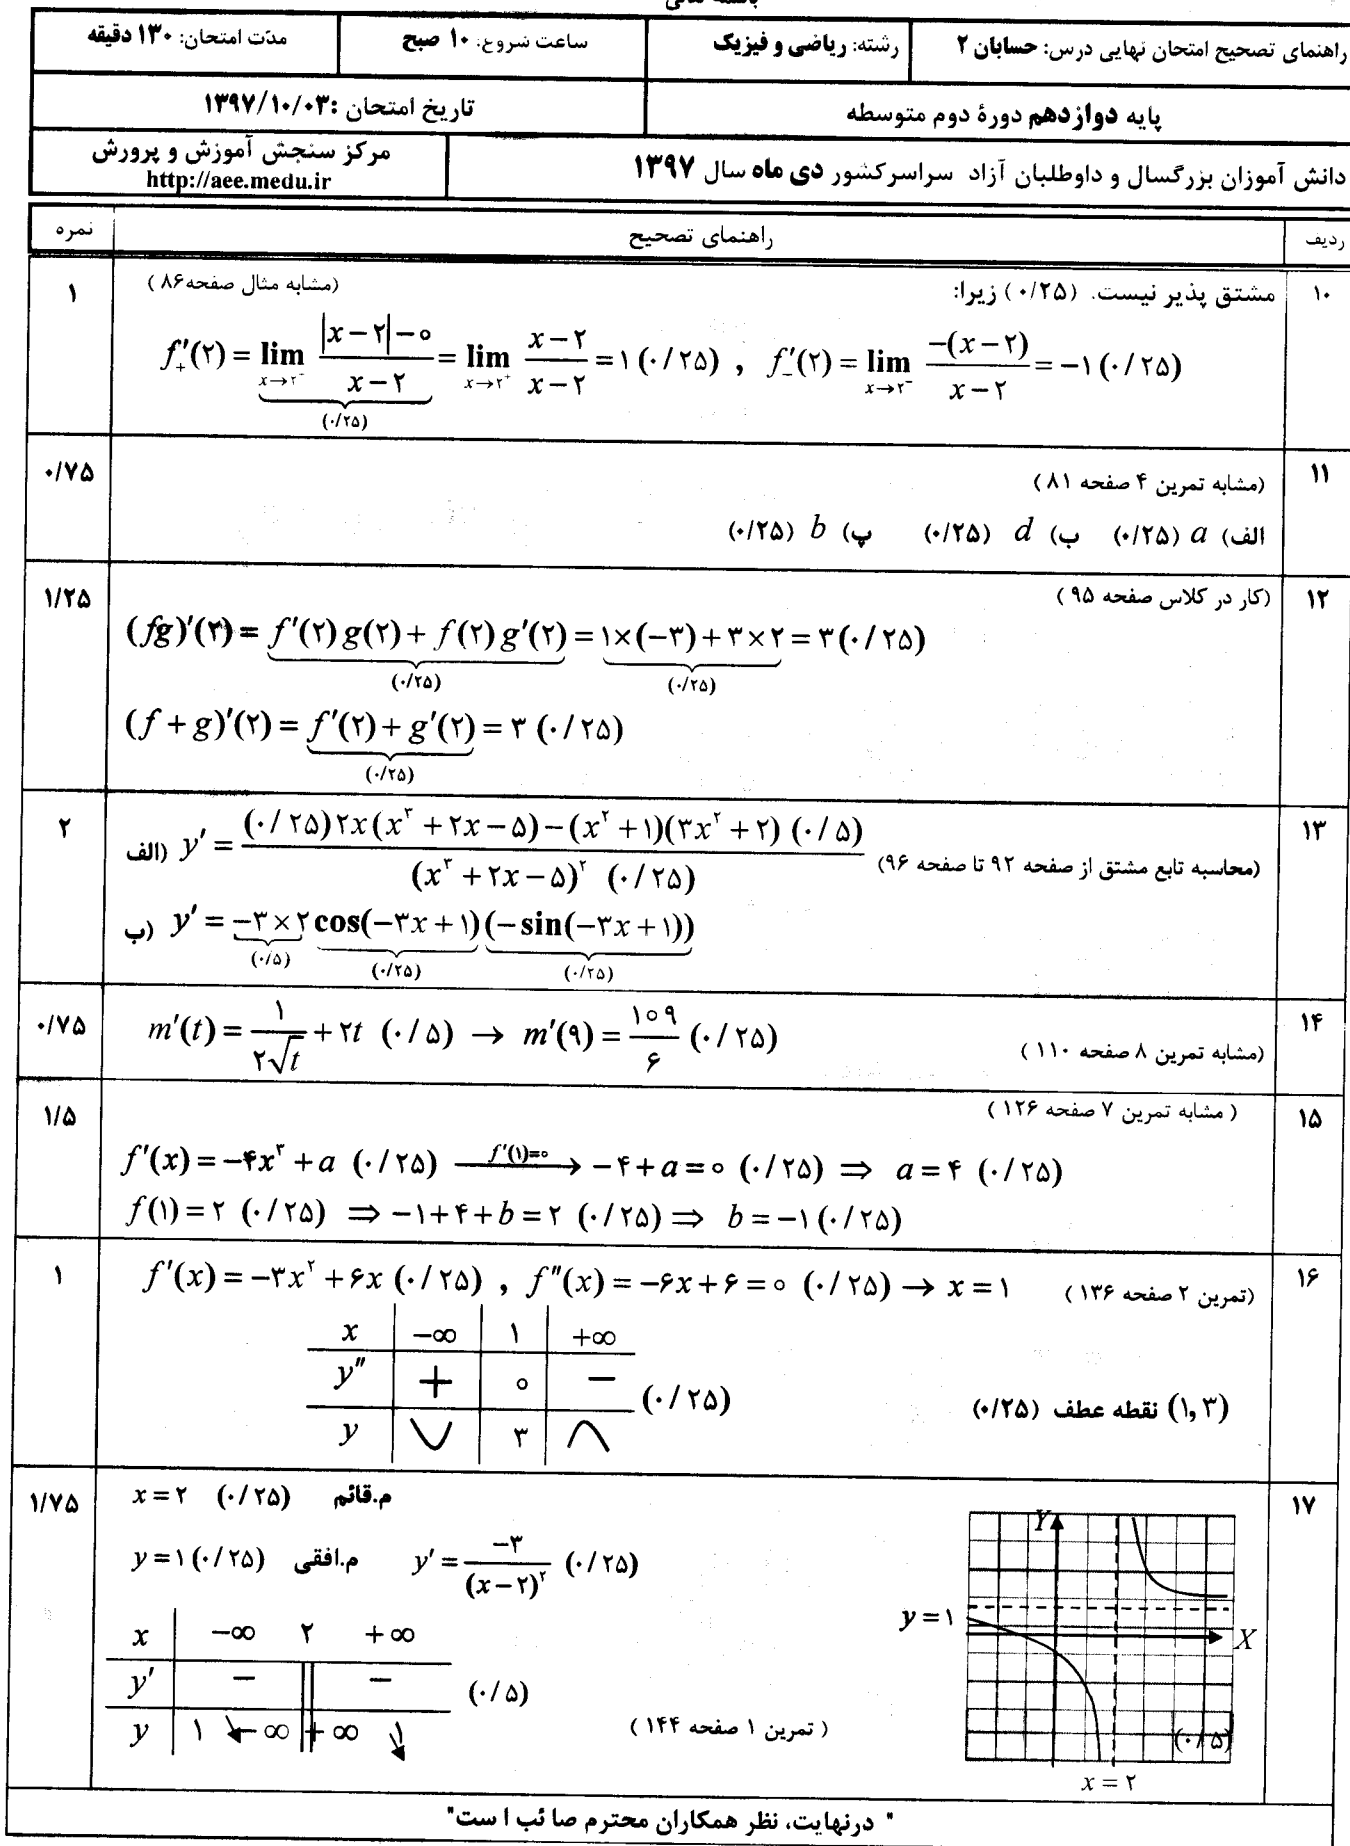 راهنمای تصحیح امتحان نهایی درس: حسابان ۲	رشته: ریاضی و فیزیک	ساعت شروع: ۱۰ صبح	مدّت امتحان: ۱۳۰ دقیقه
پایه دوازدهم دورهٔ دوم متوسطه	تاریخ امتحان :۱۳۹۷/۱۰/۰۳
دانش آموزان بزرگسال و داوطلبان آزاد سراسرکشور دی ماه سال ۱۳۹۷	مرکز سنجش آموزش و پرورش
http://aee.medu.ir
ردیف	راهنمای تصحیح	نمره
۱۰	مشتق پذیر نیست. (۰/۲۵) زیرا:	(مشابه مثال صفحه۸۶)	۱
f′₊(۲) = lim x→۲⁻ (|x−۲|−۰)/(x−۲) = lim x→۲⁺ (x−۲)/(x−۲) = ۱ (۰/۲۵) , f′₋(۲) = lim x→۲⁻ −(x−۲)/(x−۲) = −۱ (۰/۲۵)
(۰/۲۵)
۱۱	(مشابه تمرین ۴ صفحه ۸۱)	۰/۷۵
الف) a (۰/۲۵) ب) d (۰/۲۵) پ) b (۰/۲۵)
۱۲	(کار در کلاس صفحه ۹۵)	۱/۲۵
(fg)′(۲) = f′(۲)g(۲) + f(۲)g′(۲) = ۱×(−۳) + ۳×۲ = ۳ (۰/۲۵)
(۰/۲۵) (۰/۲۵)
(f + g)′(۲) = f′(۲) + g′(۲) = ۳ (۰/۲۵)
(۰/۲۵)
۱۳	(محاسبه تابع مشتق از صفحه ۹۲ تا صفحه ۹۶)	۲
الف) y′ = (۰/۲۵) ۲x(x³ + ۲x − ۵) − (x² + ۱)(۳x² + ۲) (۰/۵) / (x³ + ۲x − ۵)² (۰/۲۵)
ب) y′ = −۳×۲ cos(−۳x + ۱)(−sin(−۳x + ۱))
(۰/۵) (۰/۲۵) (۰/۲۵)
۱۴	(مشابه تمرین ۸ صفحه ۱۱۰)	۰/۷۵
m′(t) = ۱/(۲√t) + ۲t (۰/۵) → m′(۹) = ۱۰۹/۶ (۰/۲۵)
۱۵	(مشابه تمرین ۷ صفحه ۱۲۶)	۱/۵
f′(x) = −۴x³ + a (۰/۲۵) f′(۱)=۰ → −۴ + a = ۰ (۰/۲۵) ⇒ a = ۴ (۰/۲۵)
f(۱) = ۲ (۰/۲۵) ⇒ −۱ + ۴ + b = ۲ (۰/۲۵) ⇒ b = −۱ (۰/۲۵)
۱۶	(تمرین ۲ صفحه ۱۳۶)	۱
f′(x) = −۳x² + ۶x (۰/۲۵) , f″(x) = −۶x + ۶ = ۰ (۰/۲۵) → x = ۱
x −∞ ۱ +∞
y″ + ۰ − (۰/۲۵)
y ∪ ۳ ∩
(۱,۳) نقطه عطف (۰/۲۵)
۱۷	۱/۷۵
x = ۲ (۰/۲۵) م.قائم
y = ۱ (۰/۲۵) م.افقی y′ = −۳/(x−۲)² (۰/۲۵)
x −∞ ۲ +∞
y′ − − (۰/۵)
y ۱ ↘ −∞ +∞ ↘ ۱
(تمرین ۱ صفحه ۱۴۴)
Y
y = ۱
X
(۰/۵)
x = ۲
" درنهایت، نظر همکاران محترم صا ئب ا ست"